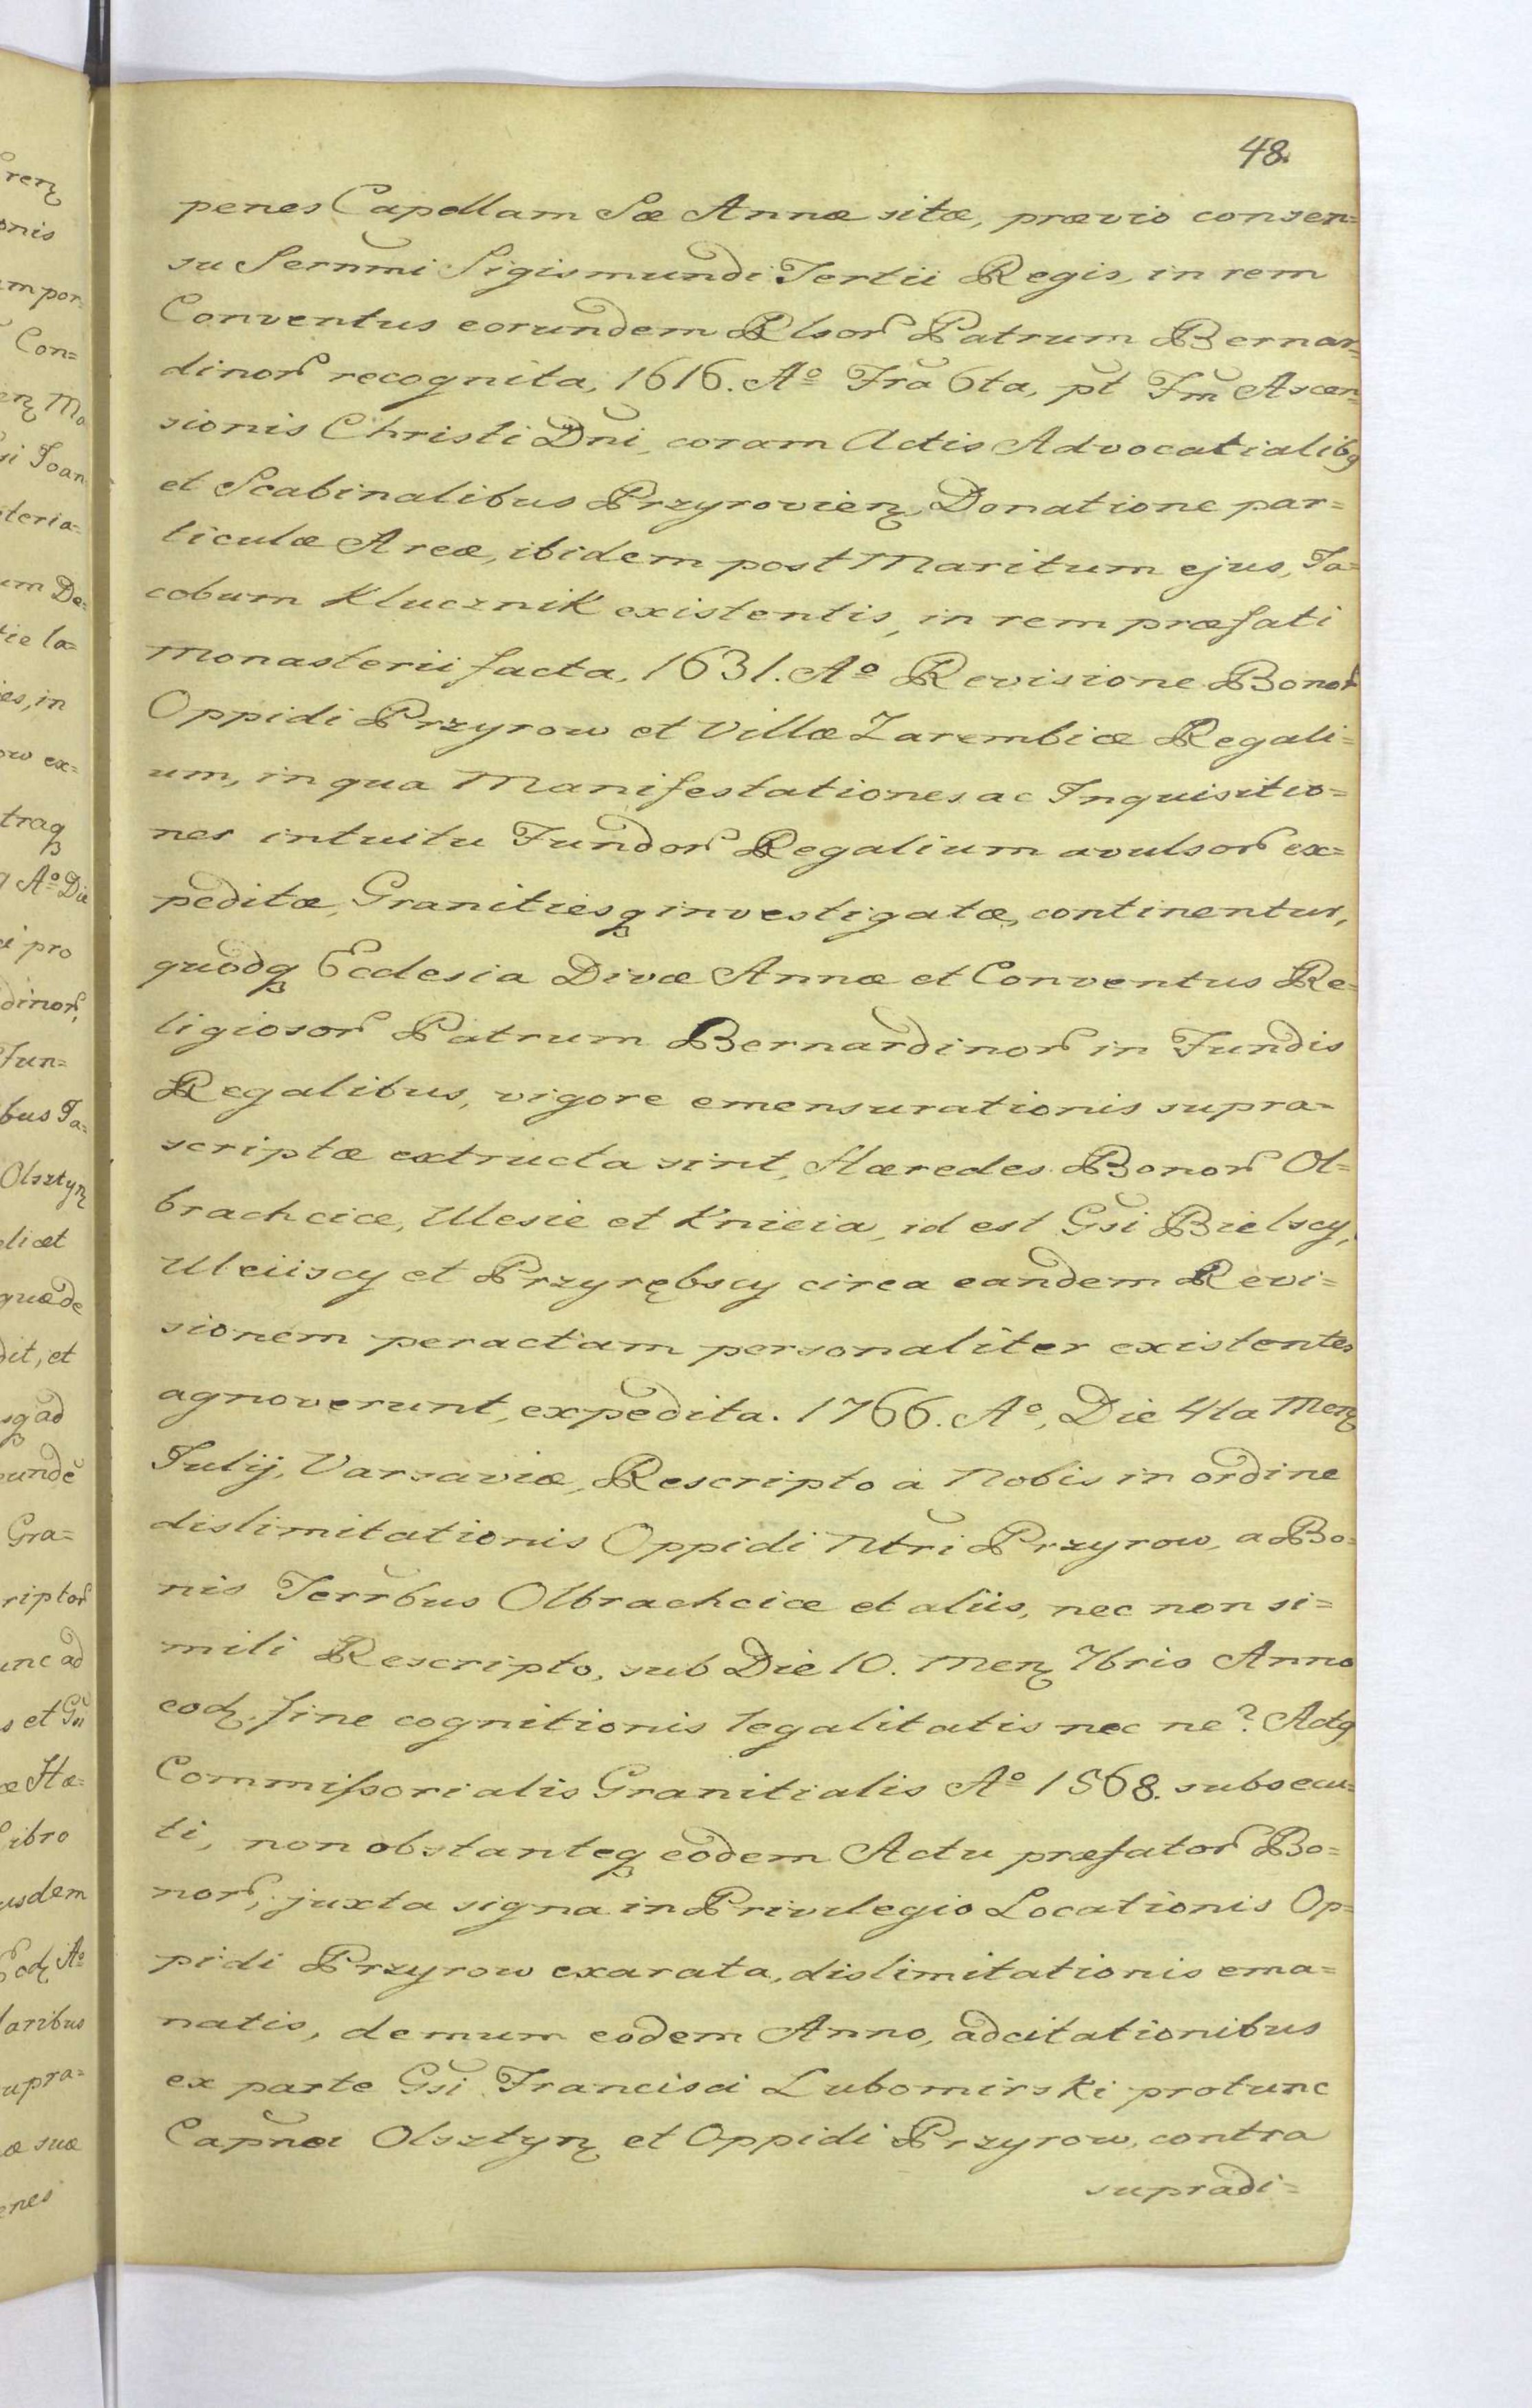 48.
penes Capellam Sæ Annæ sitæ, prævio consen=
su Sernmi Sigismundi Tertii Regis, in rem
Conventus eorundem Rlsor Patrum Bernar=
dinor recognita, 1616. Aº Fra 6ta, pt Fm Ascen=
sionis Christi Dni, coram Actis Advocatialibq
et Scabinalibus Przyrovienȝ, Donatione par=
ticulæ Areæ, ibidem post Maritum ejus, Ja=
cobum Klucznik existentis, in rem præfati
Monasterii facta, 1631. Aº Revisione Bonor
Oppidi Przyrow et Villæ Zarembice Regali=
um, in qua Manifestationes ac Inquisitio=
nes intuitu Fundor Regalium avulsor ex=
peditæ, Granitiesq investigatæ, continentur,
quodq Ecclesia Divæ Annæ et Conventus Re=
ligiosor Patrum Bernardinor in Fundis
Regalibus, vigore emensurationis supra=
scriptæ extructa sint, Hæredes Bonor Ol=
brachcice, Ulesie et Knieia, id est Gsi Bielscy,
Uleiiscy et Przyrębscy circa eandem Revi=
sionem peractam personaliter existentes
agnoverunt, expedita. 1766. Aº, Die 4ta Menȝ
Julij, Varsaviæ, Rescripto à Nobis in ordine
dislimitationis Oppidi Ntri Przyrow, a Bo=
nis Terrbus Olbrachcice et aliis, nec non si=
mili Rescripto, sub Die 10. Menȝ 7bris Anno
eodȝ. fine cognitionis legalitatis nec ne? Actq
Commissorialis Granitialis Aº 1568. subsecu=
ti, non obstanteq eodem Actu præfator Bo=
nor, juxta signa in Privilegio Locationis Op=
pidi Przyrow exarata, dislimitationis ema=
natis, demum eodem Anno, adcitationibus
ex parte Gsi Francisci Lubomirski protunc
Capnei Olsztynȝ et Oppidi Przyrow, contra
supradi=